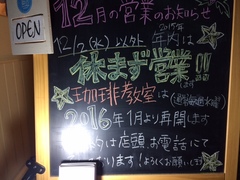 OPEN
12月の営業のお知らせ
12/2(水)以外
2015年
年内は
休まず営業!!
珈琲教室は
2016年1月より再開します
内は店頭、お電話にて
ます!よろしくお願いします